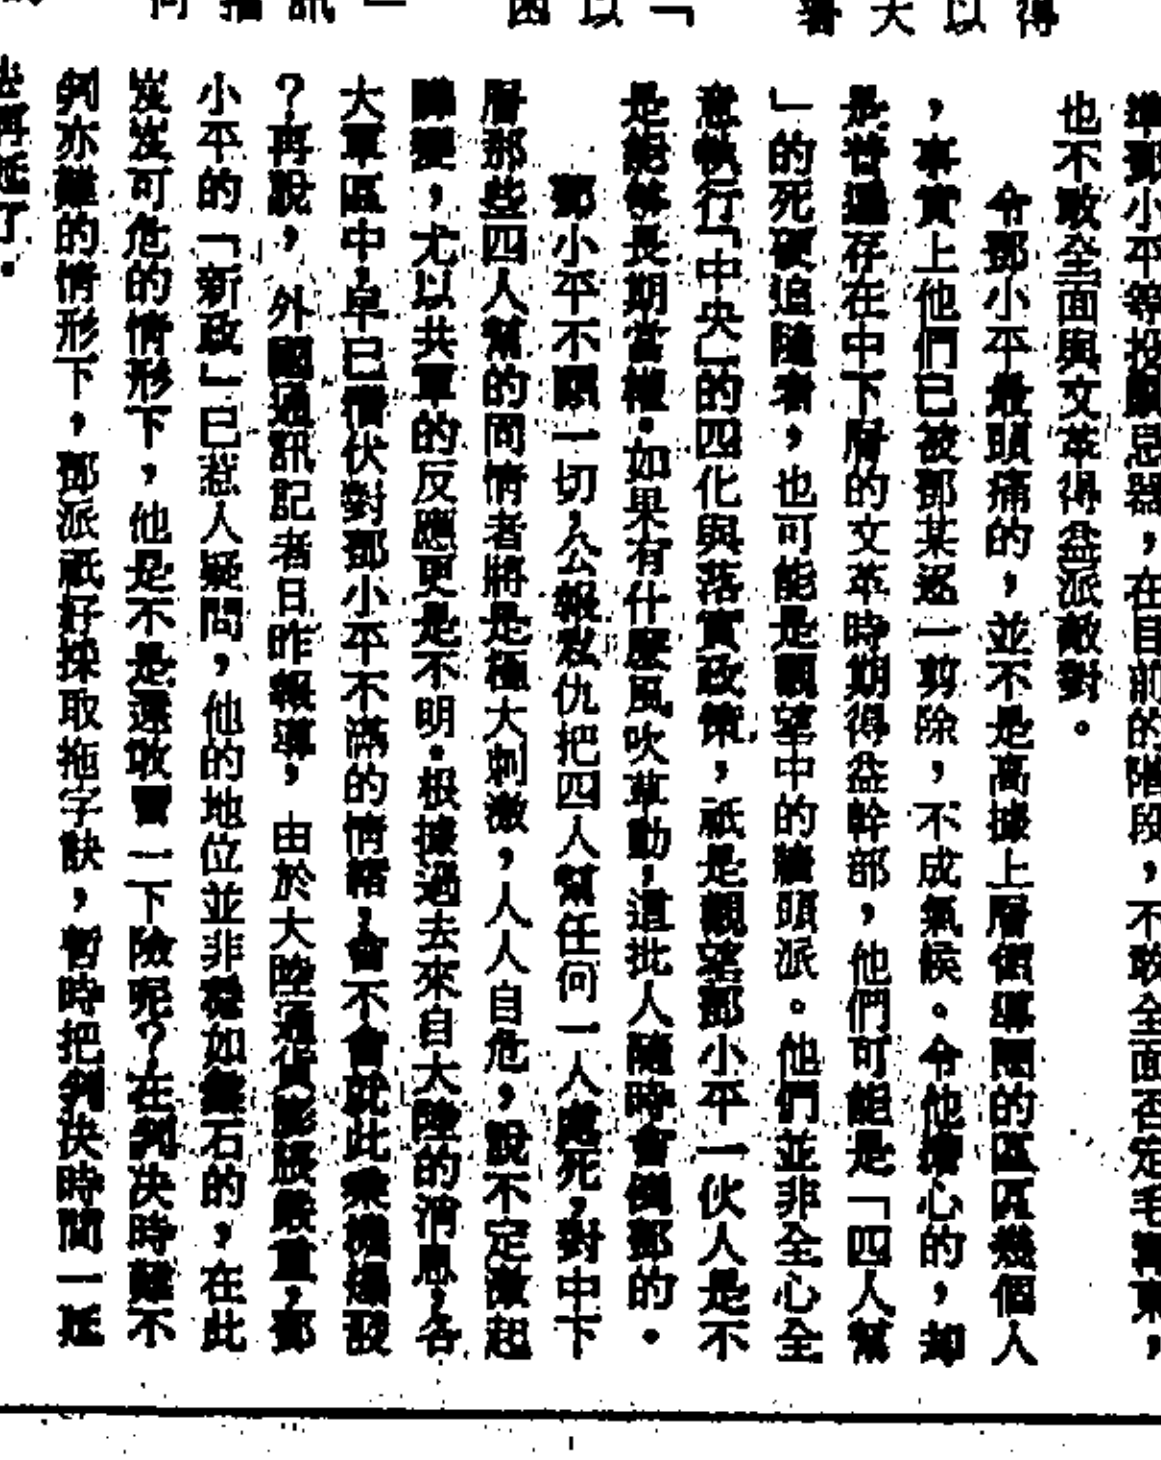 得
以
大
以
「
訊
準鄧小平等投鼠忌器，在目前的階段，不敢全面否定毛澤東，
也不敢全面與文革得益派敵對。
令鄧小平最頭痛的，並不是高據上層領導團的區區幾個人
，事實上他們已被鄧某逐一剪除，不成氣候。令他擔心的，却
是普遍存在中下層的文革時期得益幹部，他們可能是「四人幫
」的死硬追隨者，也可能是觀望中的牆頭派。他們並非全心全
意執行「中央」的四化與落實政策，祇是觀望鄧小平一伙人是不
是能够長期當權。如果有什麼風吹草動，這批人隨時會倒鄧的。
鄧小平不顧一切，公報私仇把四人幫任何一人處死，對中下
層那些四人幫的同情者將是極大刺激，人人自危，說不定激起
譁變，尤以共軍的反應更是不明。根據過去來自大陸的消息，各
大軍區中，早已潛伏對鄧小平不滿的情緒，會不會就此乘機爆發
？再說，外國通訊記者日昨報導，由於大陸通貨膨脹嚴重，鄧
小平的「新政」已惹人疑問，他的地位並非穩如磐石的，在此
岌岌可危的情形下，他是不是還敢冒一下險呢？在判決時難不
判亦難的情形下，鄧派祇好採取拖字訣，暫時把判決時間一延
再延了。